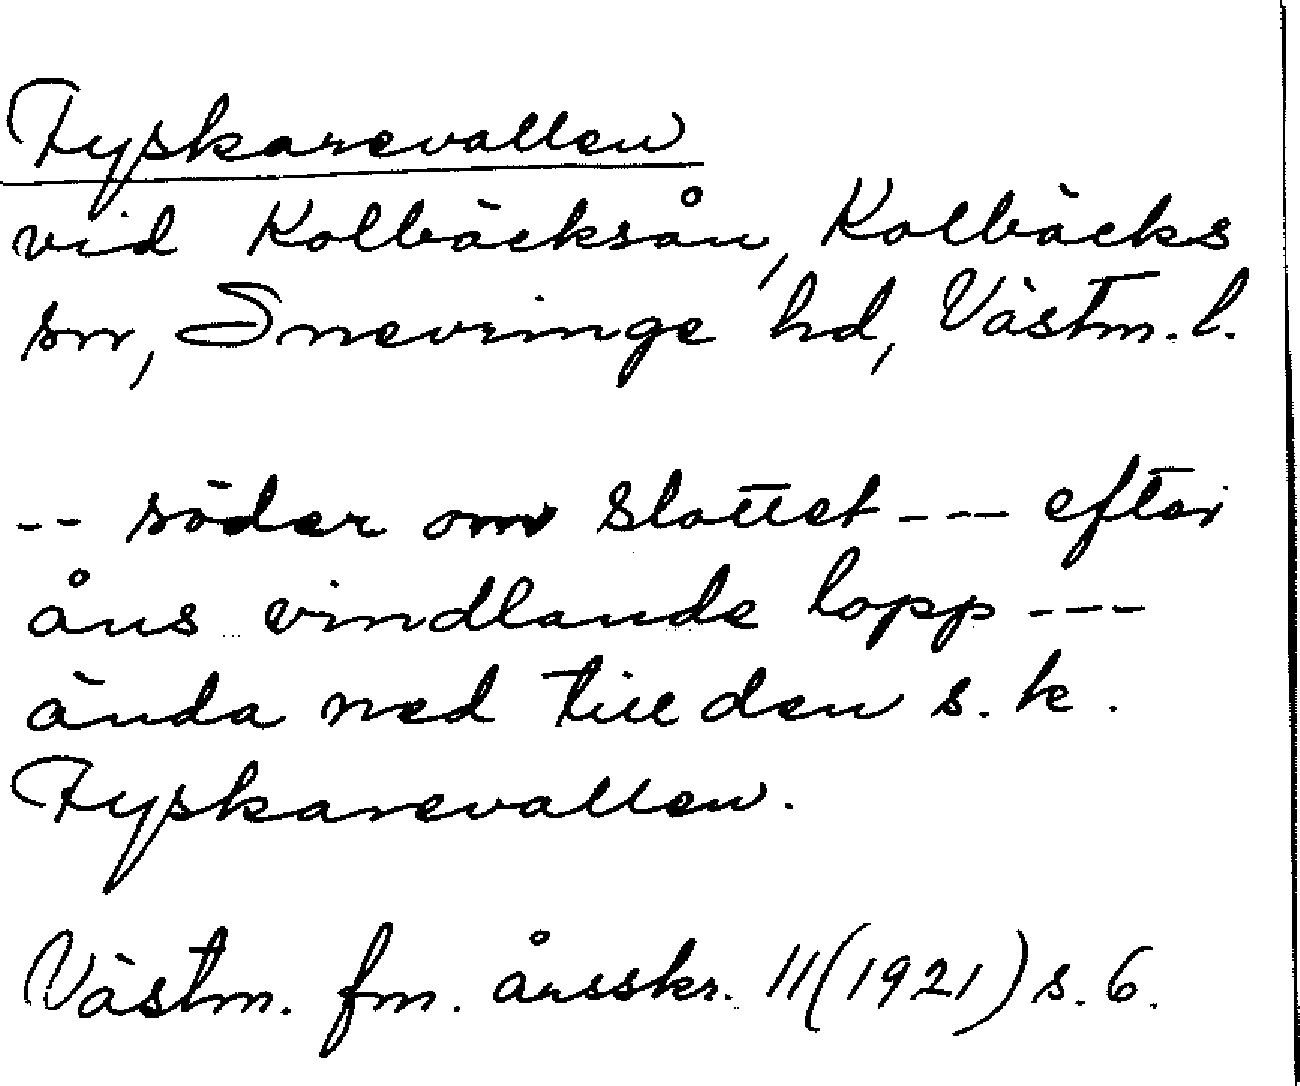 Fyskarevallen
vid Kolbäcksån, Kolbäcks
sn, Snevringe hd, Västm. l.
-- söder om slottet --- efter
åns vindlande lopp ---
ända ned till den s. k.
Fyskarevallen.
Västm. fm. årsskr. 11 (1921) s. 6.